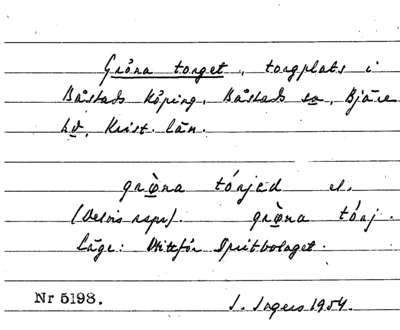 Gröna torget, torgplats i
Båstads köping, Båstads sn, Bjäre
hd, Krist. län.
grø̀na tórjəd el.
(Delvis rspr). grø̀na tórj.
Läge: Mittför Spritbolaget.
Nr 5198. I. Ingers 1954.